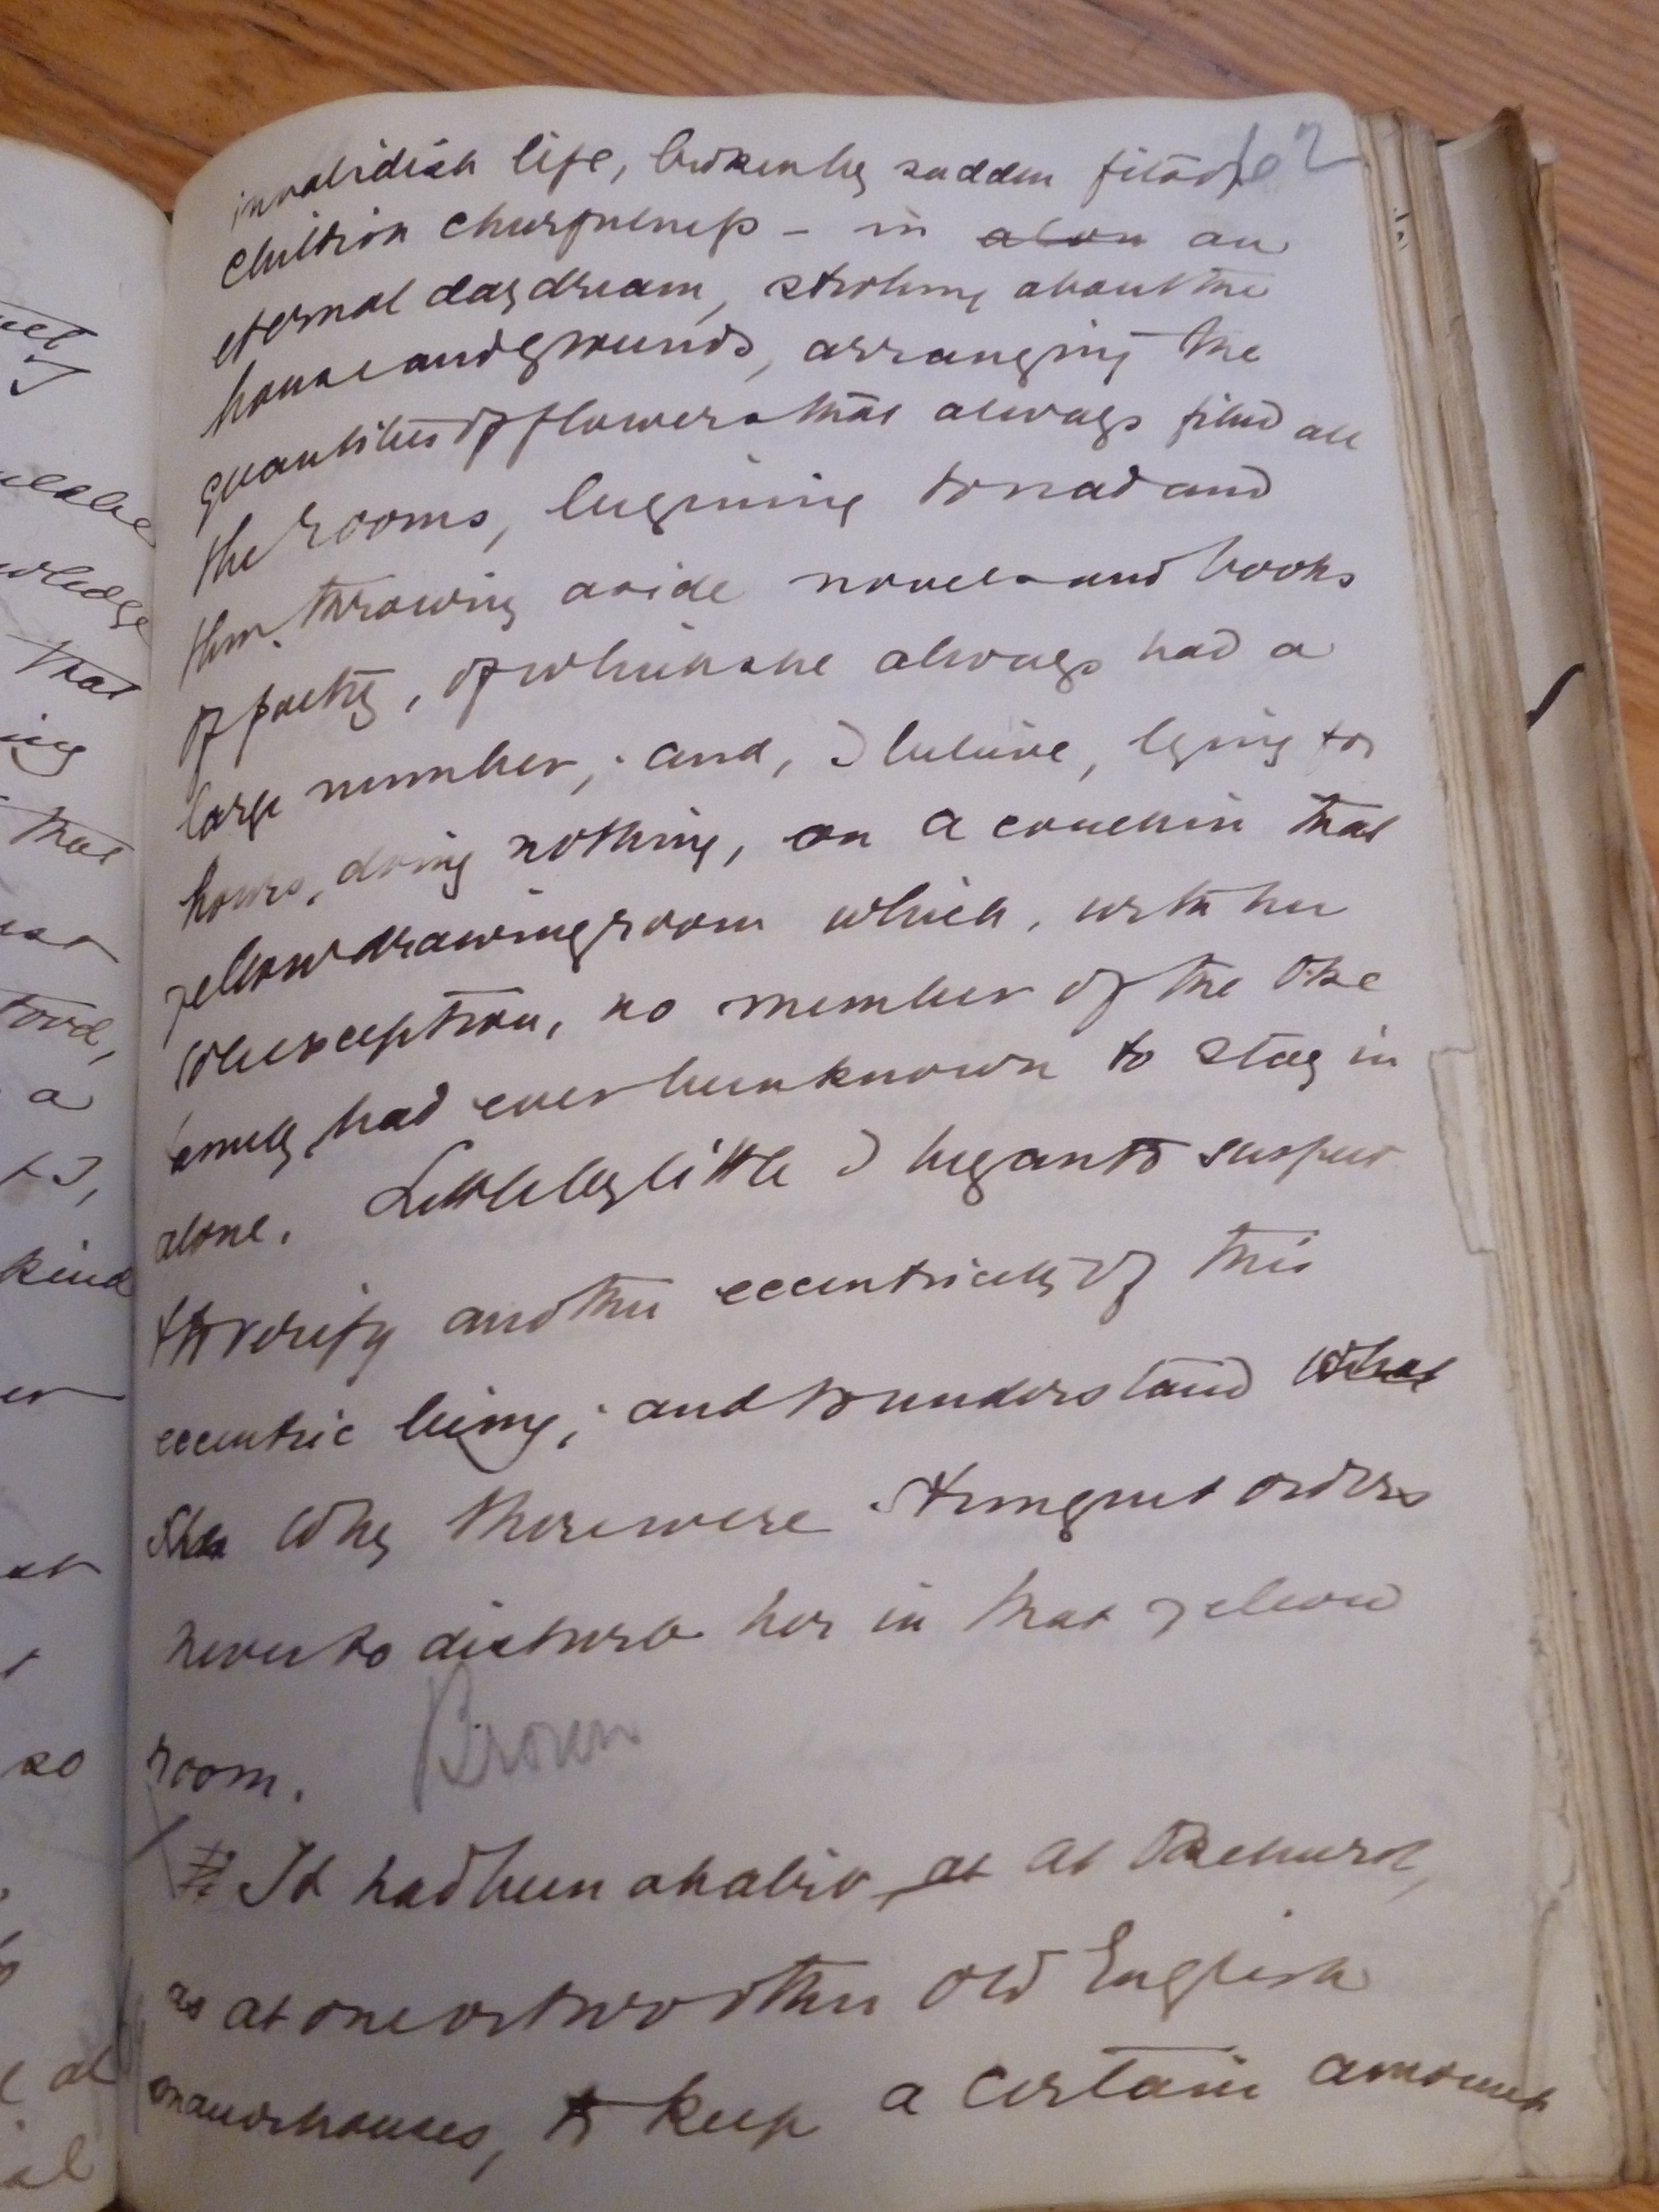 invalidish life, broken by sudden fits of
childish cheerfulness – in an
eternal daydream, strolling about the
house and grounds, arranging the
quantities of flowers that always filled all
the rooms, beginning to read and
then throwing aside novels and books
of poetry, of which she always had a
large number; and, I believe, lying for
hours, doing nothing, on a couch in that
yellow drawingroom which, with her
sole exception, no member of the Oke
family had ever been known to stay in
alone. Little by little I began to suspect
to verify another eccentricity of this
eccentric being; and to understand what
she why there were stringent orders
never to disturb her in that yellow
room. Brown
It had been a habit at at Okehurst,
as at one or two other old English
manorhouses, to keep a certain amount
that
that
kind
a
so